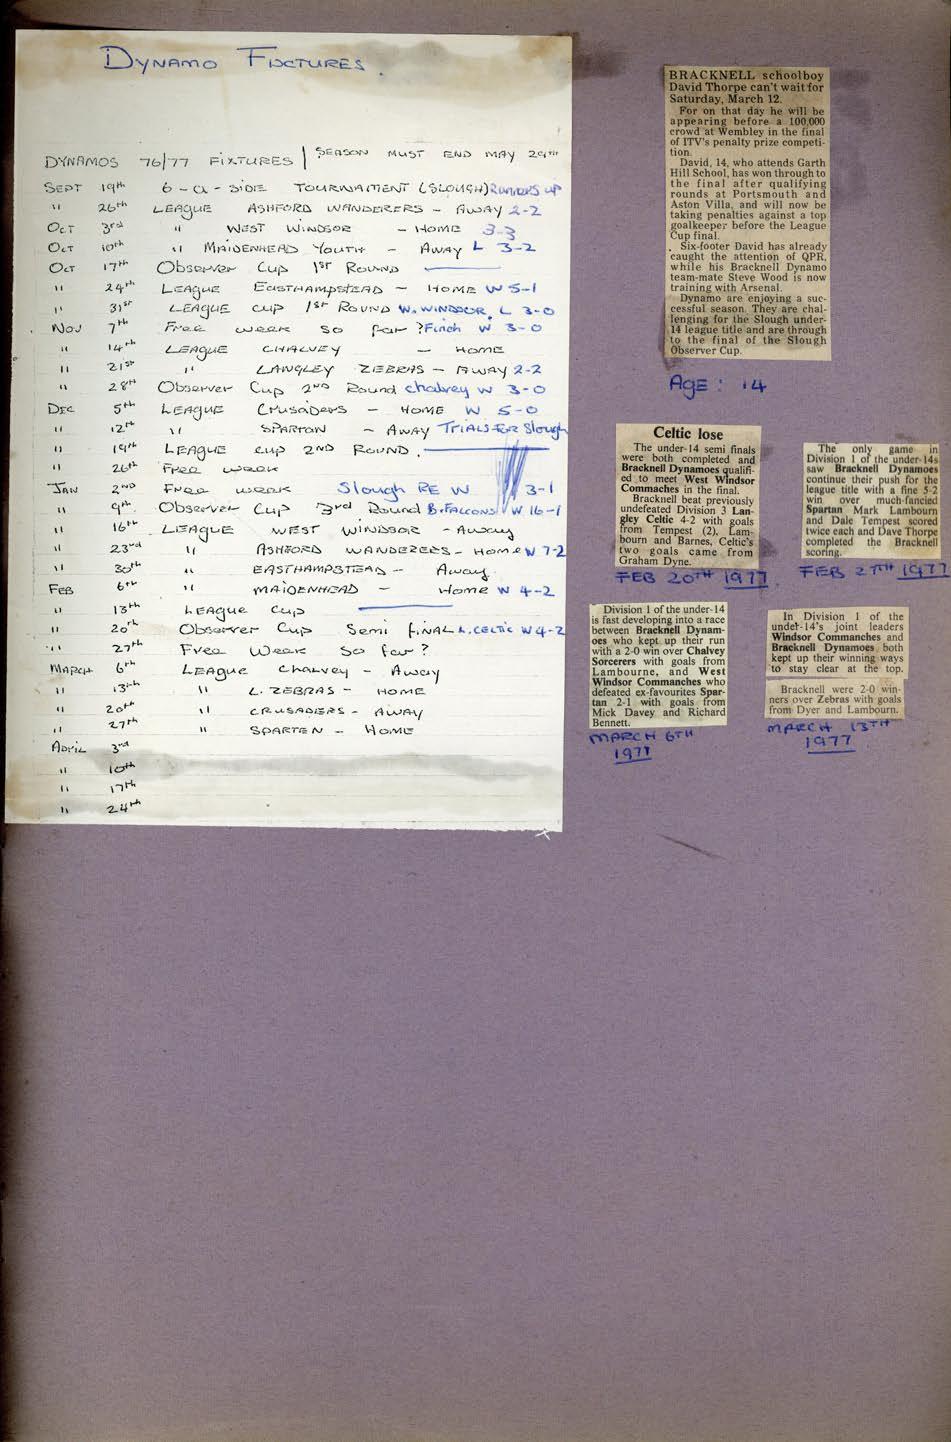 DYNAMO FIXTURES.
DYNAMOS 76/77 FIXTURES | SEASON MUST END MAY 29TH
SEPT 19th 6-a-SIDE TOURNAMENT (SLOUGH) RUNNERS UP
" 26th LEAGUE ASHFORD WANDERERS - AWAY 2-2
OCT 3rd " WEST WINDSOR - HOME 3-3
OCT 10th " MAIDENHEAD YOUTH - AWAY L 3-2
OCT 17th Observer Cup 1st ROUND
" 24th LEAGUE EASTHAMPSTEAD - HOME W 5-1
" 31st LEAGUE CUP 1st ROUND W.WINDSOR. L 3-0
NOV 7th Free week so far ? Finch W 3-0
" 14th LEAGUE CHALVEY - HOME
" 21st " LANGLEY ZEBRAS - AWAY 2-2
" 28th Observer Cup 2nd Round chalvey W 3-0
DEC 5th LEAGUE CRUSADERS - HOME W 5-0
" 12th " SPARTON - AWAY TRIALS FOR Slough
" 19th LEAGUE cup 2ND ROUND.
" 26th Free week
JAN 2nd Free week Slough RE W 3-1
" 9th. Observer Cup 3rd Round B.FALCONS W 16-1
" 16th LEAGUE WEST WINDSOR - Away
" 23rd " ASHFORD WANDERERS - Home W 7-2
" 30th " EASTHAMPSTEAD - Away.
FEB 6th " MAIDENHEAD - Home W 4-2
" 13th LEAGUE CUP
" 20th Observer Cup Semi FINAL L.CELTIC W 4-2
" 27th Free Week so far?
MARCH 6th LEAGUE Chalvey - Away
" 13th " L. ZEBRAS - HOME
" 20th " CRUSADERS - AWAY
" 27th " SPARTEN - HOME
APRIL 3rd
" 10th
" 17th
" 24th
BRACKNELL schoolboy
David Thorpe can't wait for
Saturday, March 12.
For on that day he will be
appearing before a 100,000
crowd at Wembley in the final
of ITV's penalty prize competi-
tion.
David, 14, who attends Garth
Hill School, has won through to
the final after qualifying
rounds at Portsmouth and
Aston Villa, and will now be
taking penalties against a top
goalkeeper before the League
Cup final.
Six-footer David has already
caught the attention of QPR,
while his Bracknell Dynamo
team-mate Steve Wood is now
training with Arsenal.
Dynamo are enjoying a suc-
cessful season. They are chal-
lenging for the Slough under-
14 league title and are through
to the final of the Slough
Observer Cup.
AGE : 14
Celtic lose
The under-14 semi finals
were both completed and
Bracknell Dynamoes qualifi-
ed to meet West Windsor
Commaches in the final.
Bracknell beat previously
undefeated Division 3 Lan-
gley Celtic 4-2 with goals
from Tempest (2), Lam-
bourn and Barnes, Celtic's
two goals came from
Graham Dyne.
FEB 20TH 1977.
The only game in
Division 1 of the under-14s
saw Bracknell Dynamoes
continue their push for the
league title with a fine 5-2
win over much-fancied
Spartan Mark Lambourn
and Dale Tempest scored
twice each and Dave Thorpe
completed the Bracknell
scoring.
FEB 27TH 1977
Division 1 of the under-14
is fast developing into a race
between Bracknell Dynam-
oes who kept up their run
with a 2-0 win over Chalvey
Sorcerers with goals from
Lambourne, and West
Windsor Commanches who
defeated ex-favourites Spar-
tan 2-1 with goals from
Mick Davey and Richard
Bennett.
MARCH 6TH
1977
In Division 1 of the
under-14's joint leaders
Windsor Commanches and
Bracknell Dynamoes both
kept up their winning ways
to stay clear at the top.
Bracknell were 2-0 win-
ners over Zebras with goals
from Dyer and Lambourn.
MARCH 13TH
1977